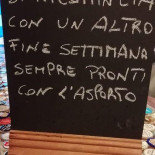 SI RICOMINCIA
CON UN ALTRO
FINE SETTIMANA
SEMPRE PRONTI
CON L'ASPORTO